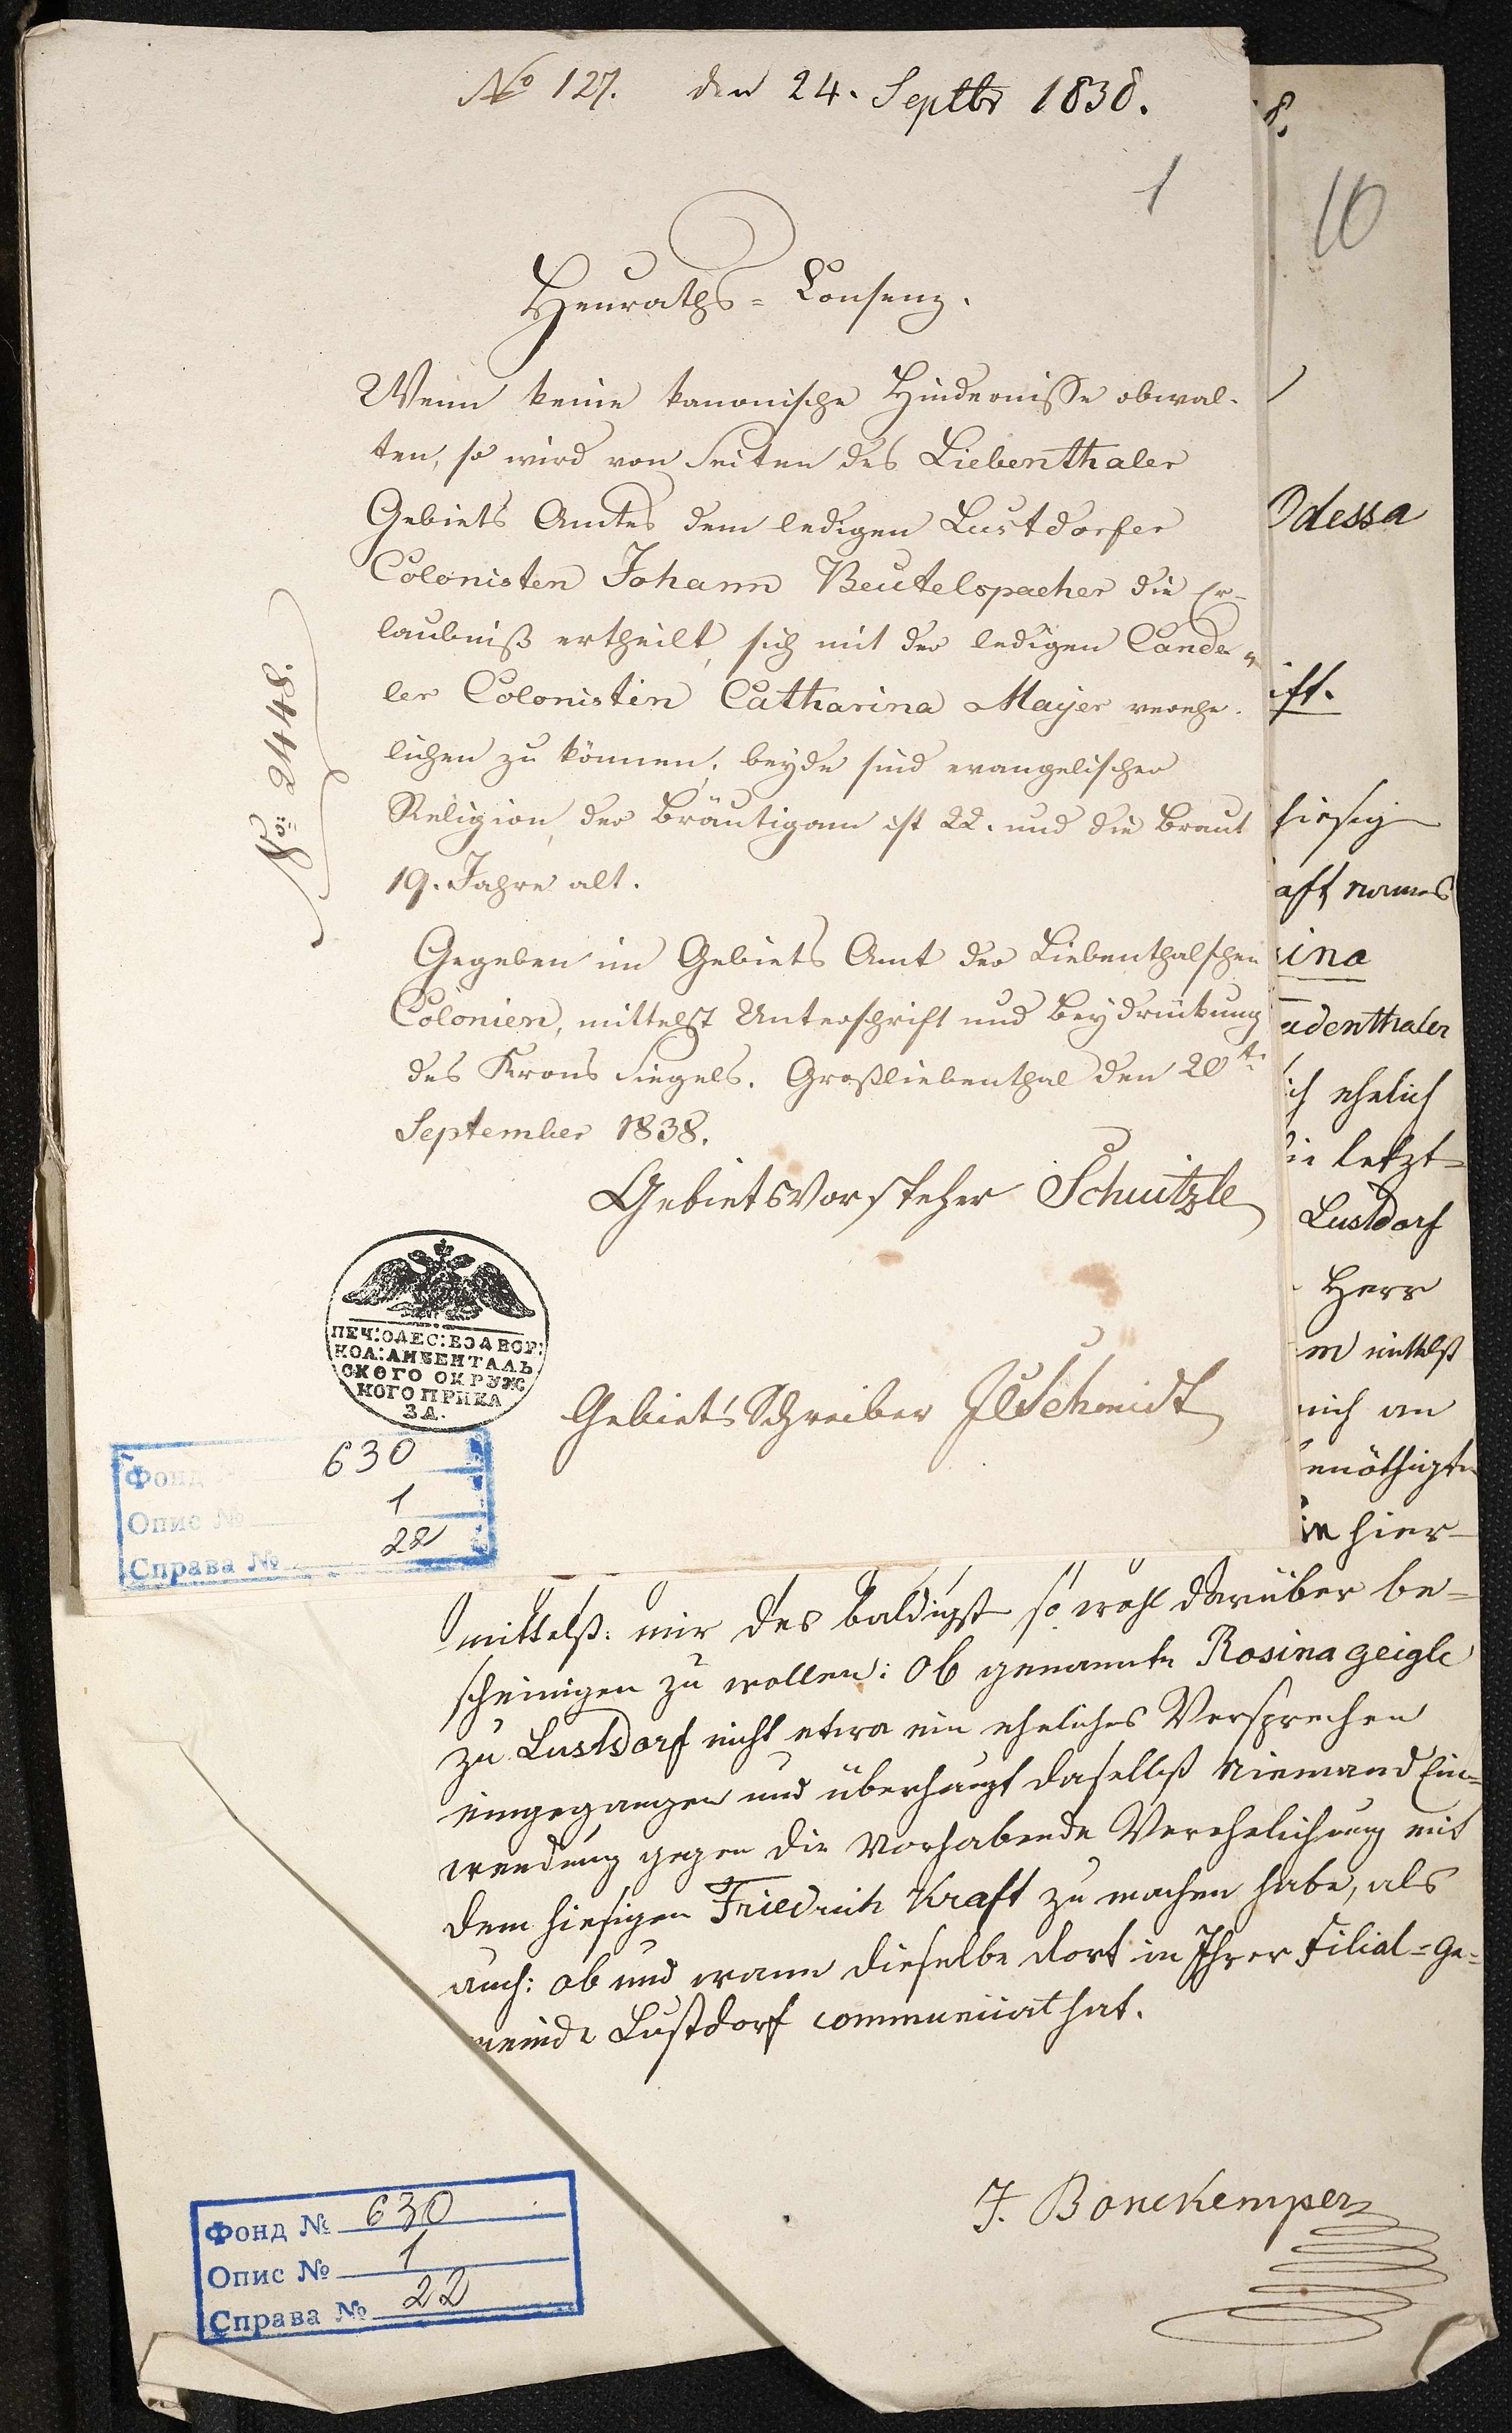 No 127. den 24. Septbr 1838.
1
Heuraths-Consenz.
Wenn keine kanonische Hindernisse obwal-
ten, so wird von Seiten des Liebenthaler
Gebiets Amtes dem ledigen Lustdorfer
Colonisten Johann Beutelspacher die Er-
laubniß ertheilt, sich mit der ledigen Cande-
ler Colonistin Catharina Mayer verehe-
lichen zu können; beyde sind evangelischer
Religion, der Bräutigam ist 22. und die Braut
19. Jahre alt.
Gegeben im Gebiets Amt der Liebenthalschen
Colonien, mittelst Unterschrift und Beydrückung
des Krons Siegels. Großliebenthal den 20t.
September 1838.
No: 2448.
Gebietsvorsteher
Gebiets Schreiber Schmidt
ПЕЧ:ОДЕС:ВЭДВОР:
КОЛ:ЛИБЕНТАЛЬ
СКОГО ОКРУЖ
НОГО ПРИКА
ЗА.
Фонд 630
Опис № 1
Справа № 22
8.
10
Odessa
ift.
hiesig
aft
ina
adenthaler
ich ehelich
die letzt-
Lustdorf
Herr
m mittelst
mich an
benöthigte
in hier-
mittelst: mir des baldigst so wohl darüber be-
scheinigen zu wollen: Ob genannte Rosina Geigle
zu Lustdorf nicht etwa ein eheliches Versprechen
eingegangen und überhaupt daselbst Niemand Ein-
wendung gegen die vorhabende Verehelichung mit
dem hiesigen Friedrich Kraft zu machen habe, als
auch: ob und wann dieselbe dort in Ihrer Filial-Ge-
meinde Lustdorf communicirt hat.
J. Bonekemper
Фонд № 630
Опис № 1
Справа № 22